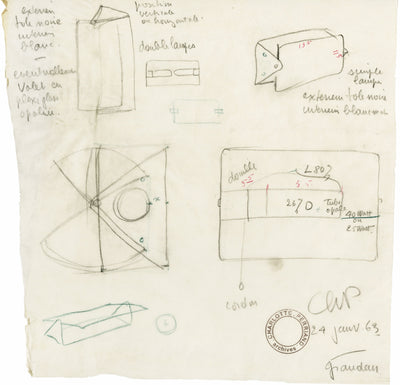 exterieur
tole noire
interieur
blanc.
—
eventuellement
Volet en
plexi glass
opaline.
position
verticale
ou horizontale.
double lampes
130
simple
lampe
exterieur tole noire
interieur blanc mat
double
L 80?
5.5
5.5
267 D
Tube
opale
40 Watt
ou
25 Watt.
x
cordon
ChP
4 janv. 63
CHARLOTTE PERRIAND
archives